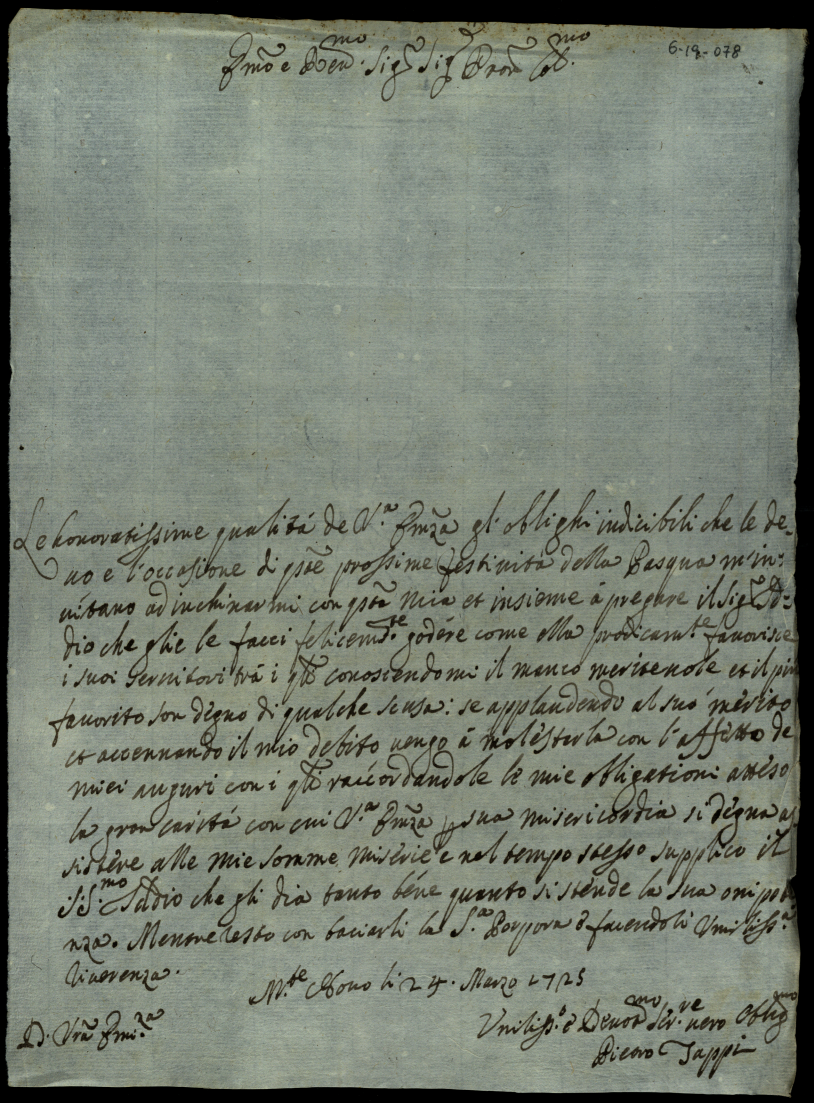 6-19-078
Emo e Revmo. Sigr Sigr Pron Colmo.
Le honoratissime qualitá de V.a Emza gl'oblighi indicibili che le de-
uo e l'occasione di pste prossime festiuitá della Pasqua m'in:
uitano ad inchinarmi con psta mia et insieme á pregare il Sigr Id:
dio che glie le facci felicemte godére come ella prodicamte. fauorisce
i suoi seruitori trá i qli conoscendomi il manco meriteuole et il più
fauorito son dégno di qualche scusa: se applaudendo al suó mérito
et accennando il mio debito uengo á molésterla con l'affetto de
miei auguri con i qli raccordandole le mie obligationi attéso
la gran caritá con cui V.a Emza p sua misericordia si dégna as
sistére alle mie somme misérie e nel tempo stesso supplico il
Sig.mo Iddio che gli dia tanto béne quanto si stende la sua onipote
nza. Mentre resto con baciarli la S.a Porpora é facendoli Vmilliss.a
riuerenza.
M.te Nouo li 24. Marzo 1725
D. Vra Emi.za
Vmiliss.o é Deuotmo Ser.re uero Obligmo
Pietro Tappi